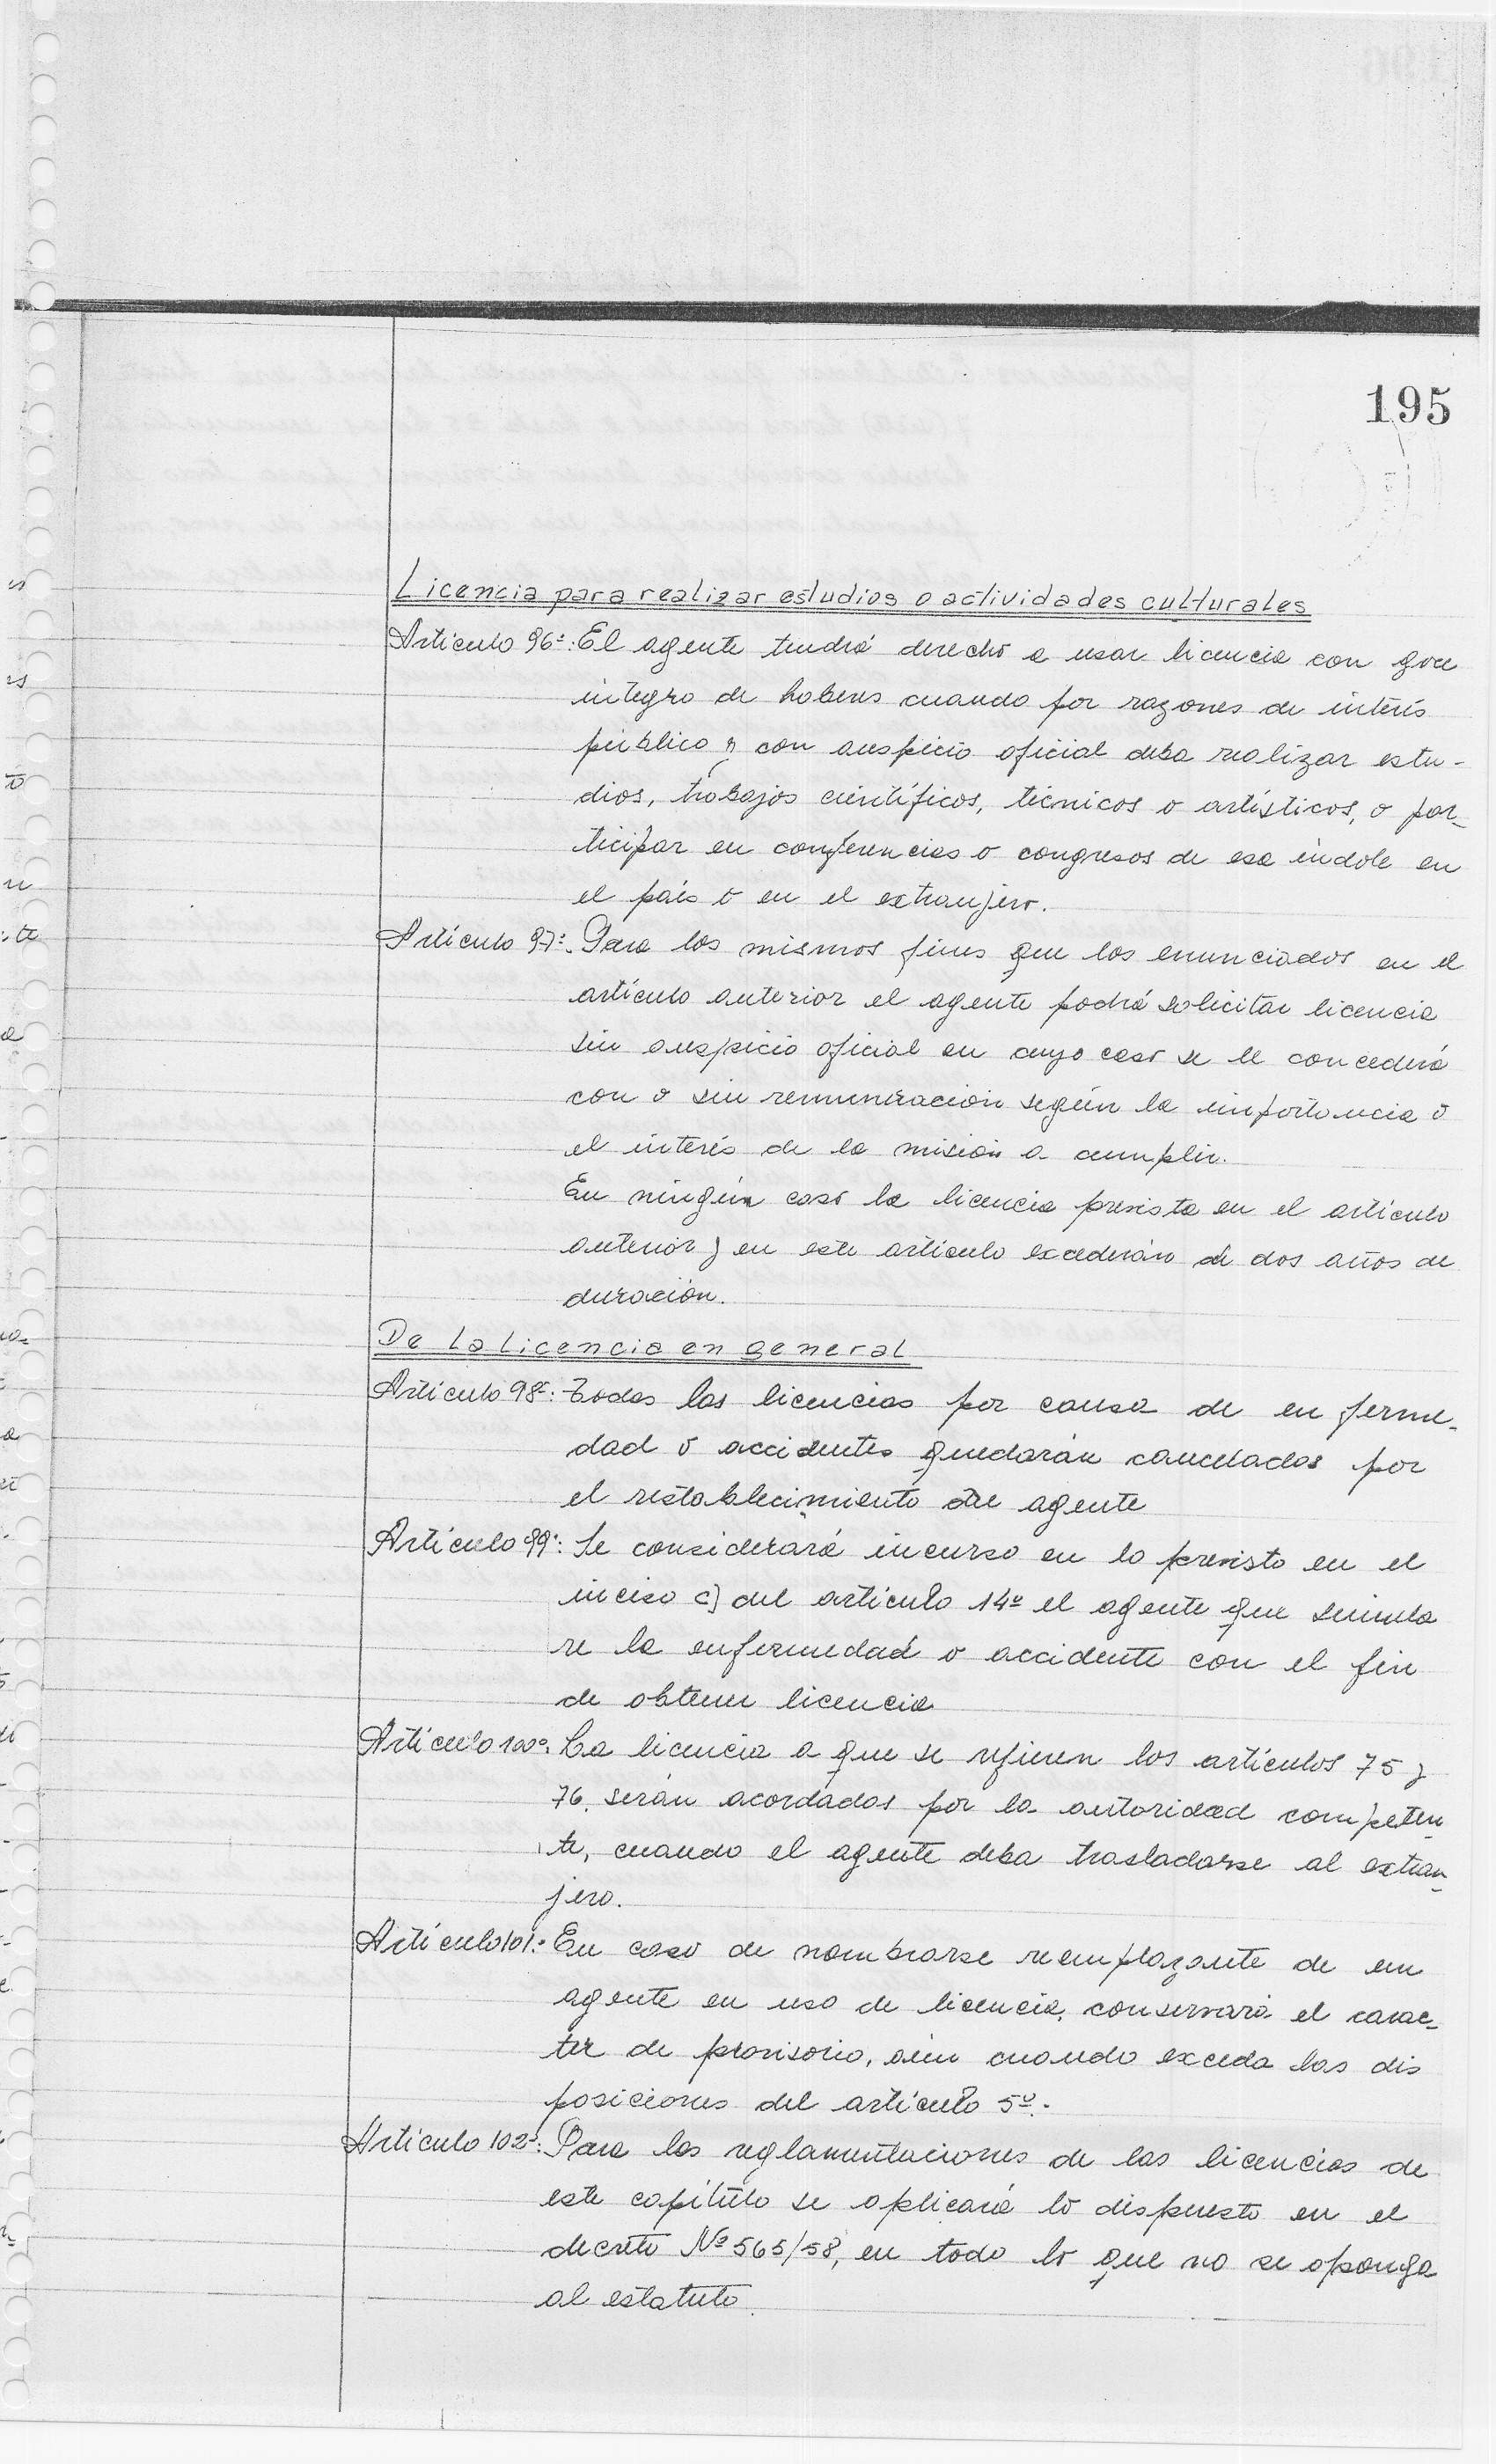 195
Licencia para realizar estudios o actividades culturales
Artículo 96º: El agente tendrá derecho a usar licencia con goce
integro de haberes cuando por razones de interés
público y con auspicio oficial deba realizar estu-
dios, trabajos científicos, técnicos o artísticos, o par-
ticipar en conferencias o congresos de esa índole en
el país o en el extranjero.
Artículo 97º: Para los mismos fines que los enunciados en el
artículo anterior el agente podrá solicitar licencia
sin auspicio oficial en cuyo caso se le concederá
con o sin remuneración según la importancia o
el interés de la misión a cumplir.
En ningún caso la licencia prevista en el artículo
anterior y en este artículo excederán de dos años de
duración.
De la Licencia en general
Artículo 98º: Todas las licencias por causa de enferme-
dad o accidentes quedarán canceladas por
el restablecimiento del agente
Artículo 99º: Se considerará incurso en lo previsto en el
inciso c) del artículo 14º el agente que simula
re la enfermedad o accidente con el fin
de obtener licencia
Artículo 100º: La licencia a que se refieren los artículos 75 y
76, serán acordadas por la autoridad competen-
te, cuando el agente deba trasladarse al extran-
jero.
Artículo 101º: En caso de nombrarse reemplazante de un
agente en uso de licencia, conservará el carac-
ter de provisorio, aún cuando exceda las dis
posiciones del artículo 5º.
Artículo 102º: Para las reglamentaciones de las licencias de
este capítulo se aplicará lo dispuesto en el
decreto Nº 565/58, en todo lo que no se oponga
al estatuto.